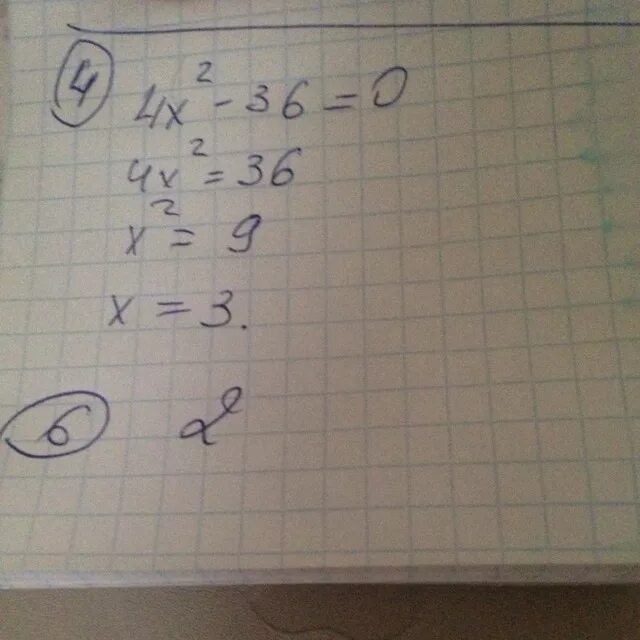 4 4x² - 36 = 0
4x² = 36
x² = 9
x = 3.
6 2